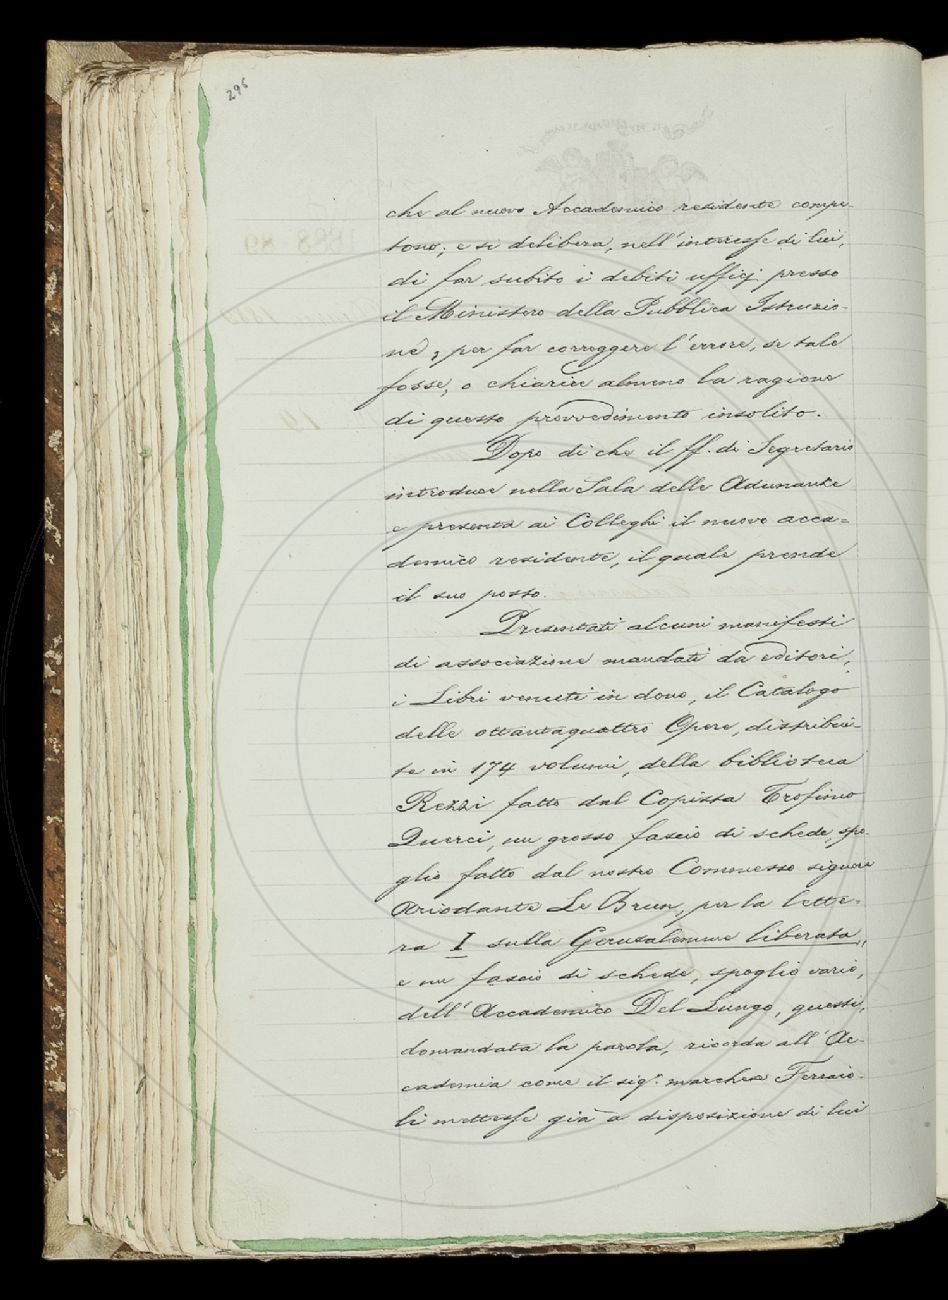 296
che al nuovo Accademico residente compe-
tono; e si delibera, nell'interesse di lui,
di far subito i debiti ufficj presso
il Ministero della Pubblica Istruzio-
ne, per far correggere l'errore, se tale
fosse, o chiarire almeno la ragione
di questo provvedimento insolito.
Dopo di che il ff. di Segretario
introduce nella Sala delle Adunanze
e presenta ai Colleghi il nuovo acca=
demico residente, il quale prende
il suo posto.
Presentati alcuni manifesti
di associazione mandati da editori,
i Libri venuti in dono, il Catalogo
delle ottantaquattro Opere, distribui-
te in 174 volumi, della biblioteca
Rezzi fatto dal Copista Trofimo
Querci, un grosso fascio di schede, spo-
glio fatto dal nostro Commesso signore
Ariodante Le Brun, per la lette-
ra I sulla Gerusalemme liberata,
e un fascio di schede, spoglio vario,
dell'Accademico Del Lungo, questi,
domandata la parola, ricorda all'Ac-
cademia come il sig.r marchese Ferraio-
li mettesse già a disposizione di lui